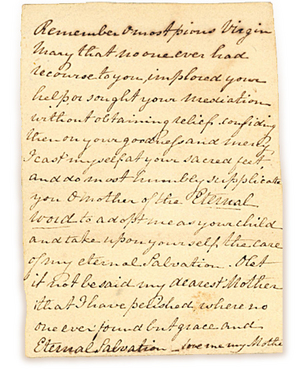 Remember O most pious Virgin
Mary that no one ever had
recourse to you, implored your
help or sought your mediation
without obtaining relief. confiding
then on your goodness and mercy
I cast myself at your sacred feet
and do most humbly supplicate
you O mother of the Eternal
Word to adopt me as your child
and take upon yourself the care
of my eternal Salvation. O let
it not be said my dearest Mother
that I have perished where no
one ever found but grace and
Eternal Salvation my Mothe